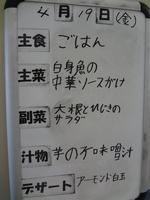 4月19日(金)
主食 ごはん
主菜 白身魚の
中華ソースがけ
副菜 大根とひじきの
サラダ
汁物 芋の子味噌汁
デザート アーモンド白玉